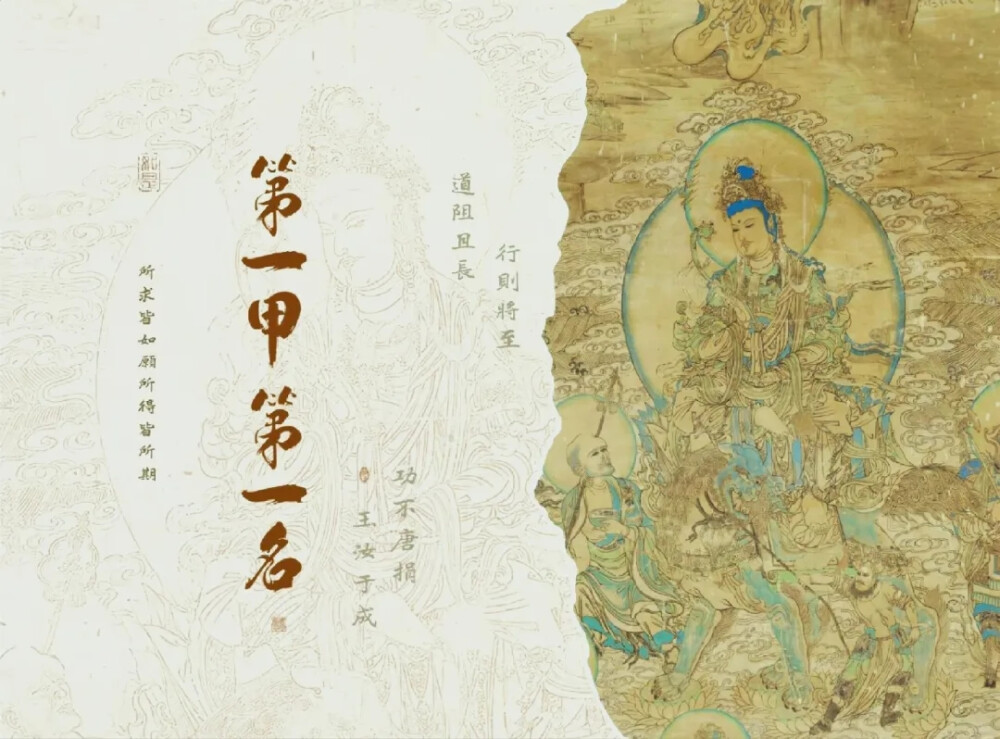 道阻且長
行則將至
第一甲第一名
所求皆如願所得皆所期
功不唐捐
玉汝于成